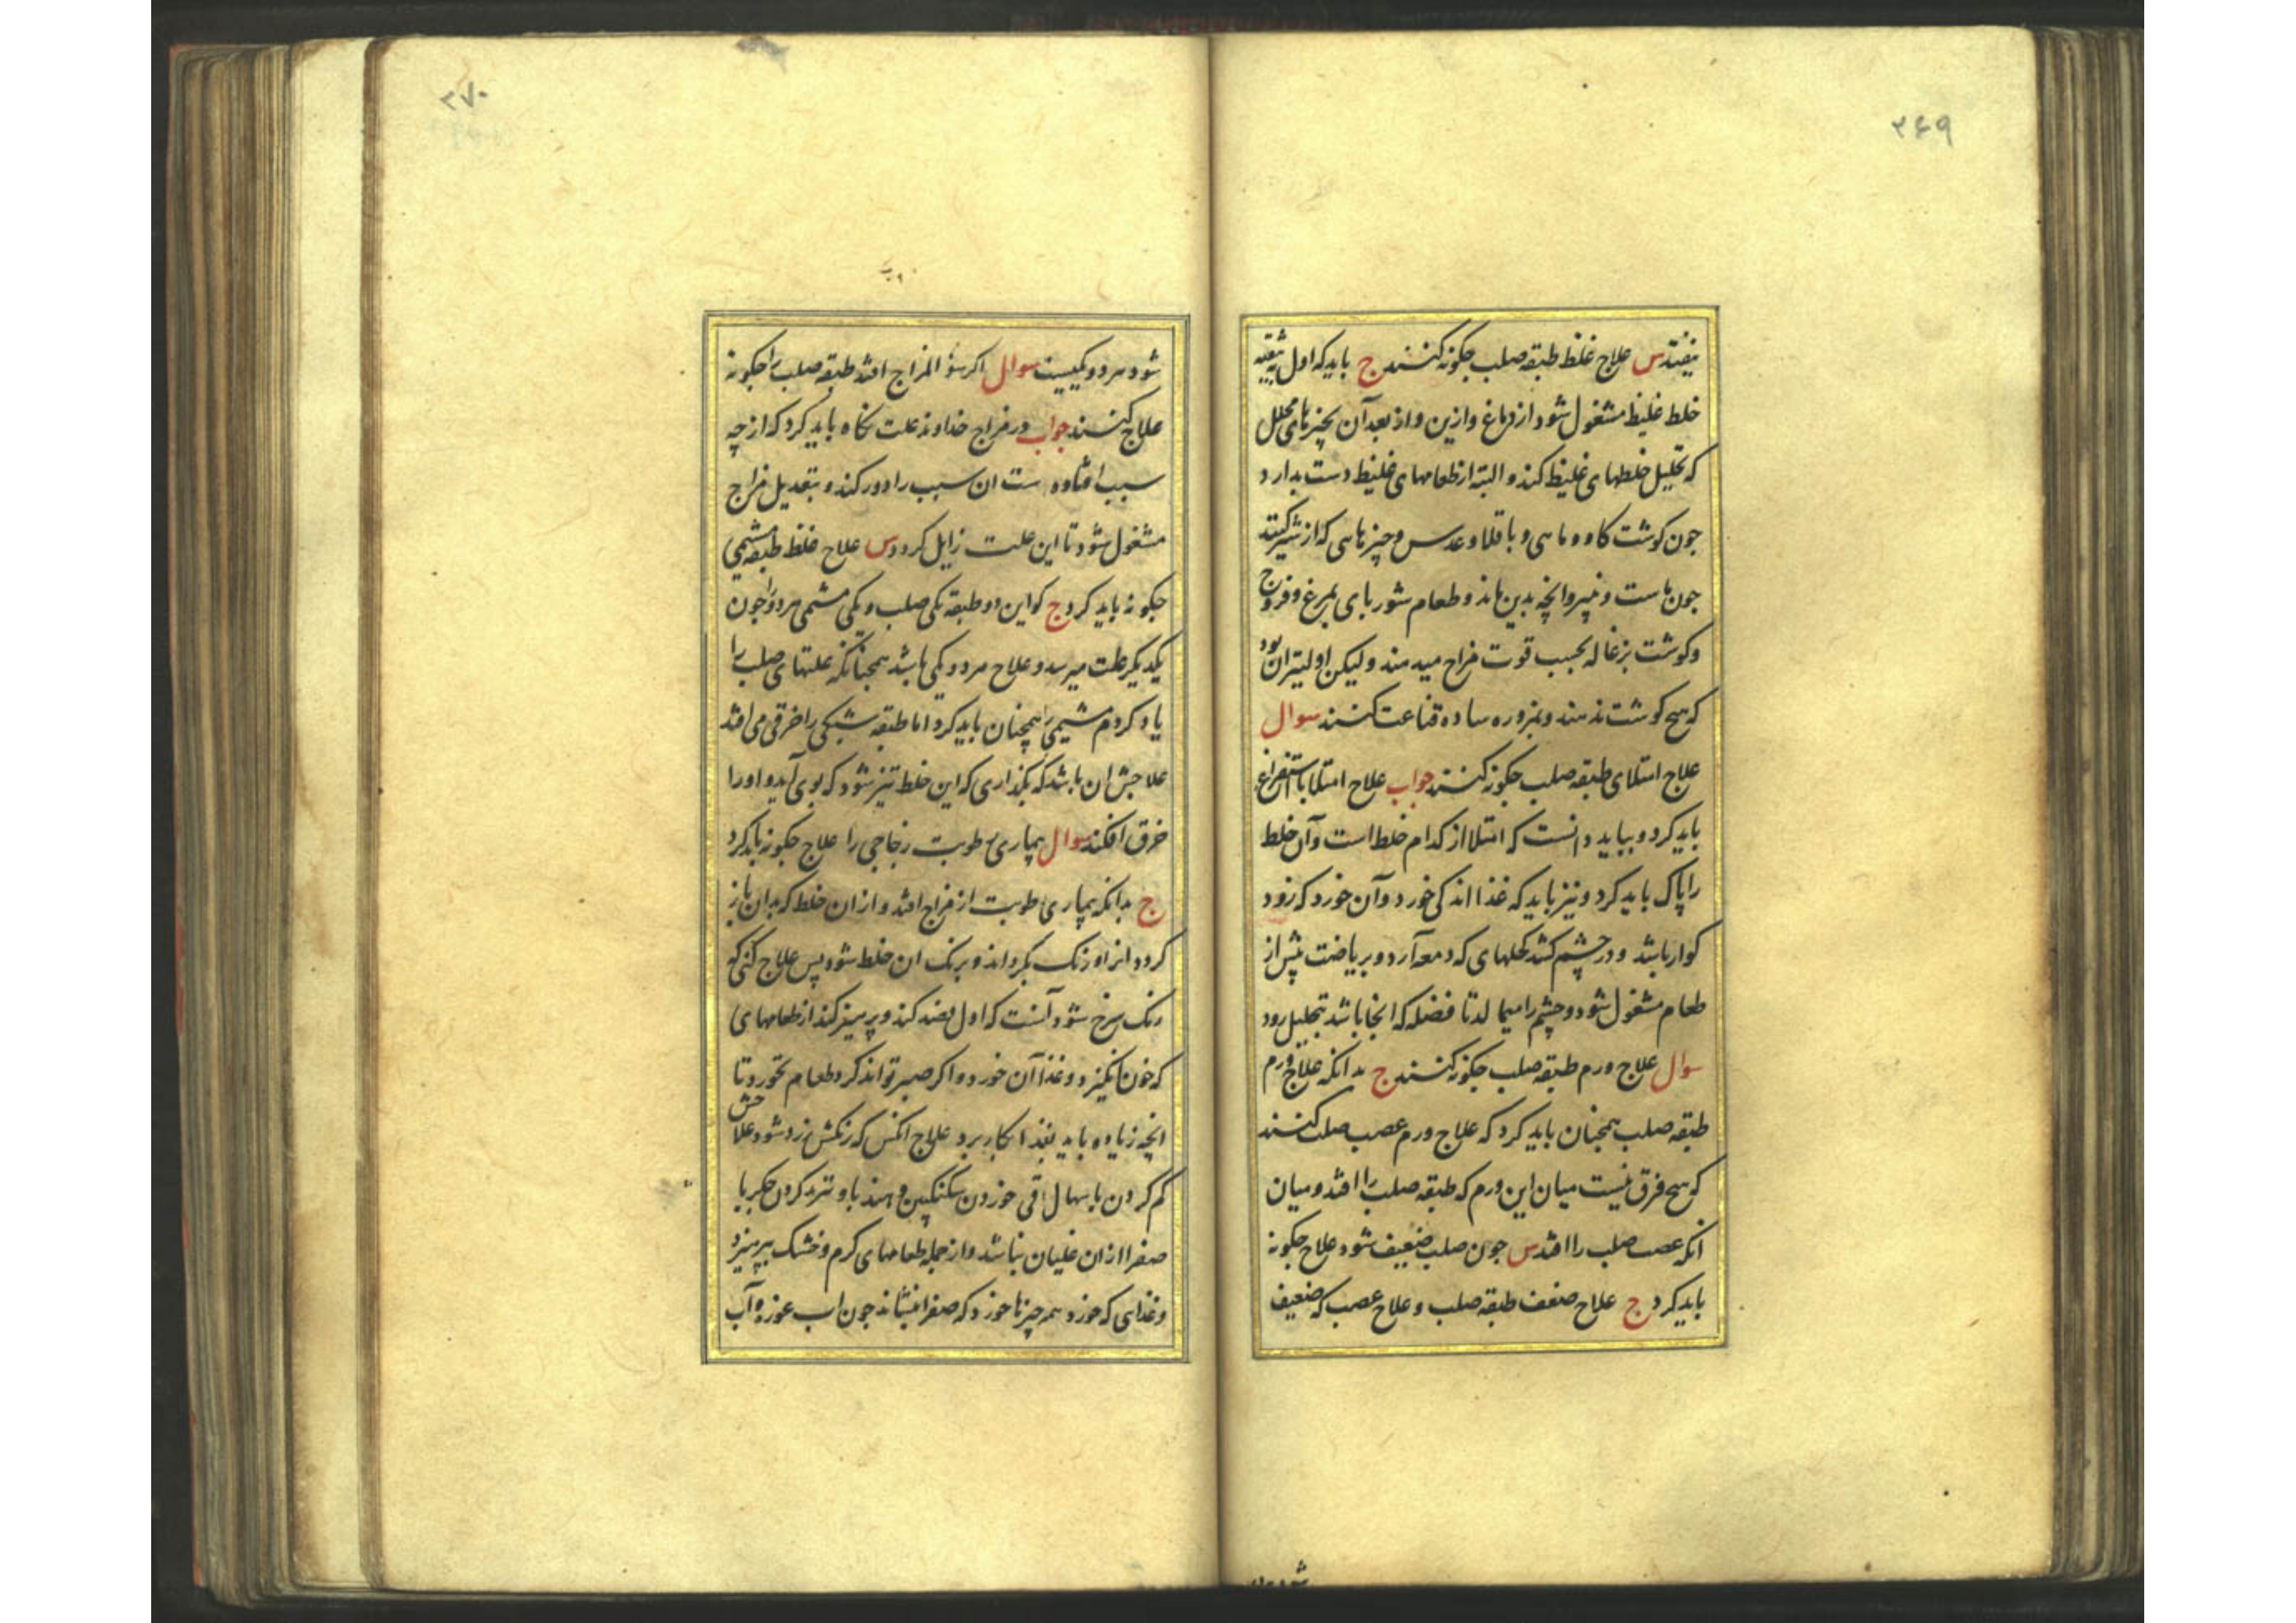 ۲۶۹
بیفتد س علاج غلظ طبقه صلب جکونه کنند ج باید که اول تنقیه
خلط غلیظ مشغول شود از دماغ وازین واز بعد آن بچیزهای محلل
که تحلیل خلطهای غلیظ کند و البته از طعامهای غلیظ دست بدارد
جون کوشت کاو و ماهی و باقلا و عدس و چیزهایی که از شیر کنند
جون ماست و پنیر و انچه بدین ماند و طعام شوربای بمرغ و فروج
و کوشت بزغاله بحسب قوت مزاج میدهند ولیکن اولیتر آن بود
که هیچ کوشت ندهند و بمزوره ساده قناعت کنند سوال
علاج امتلای طبقه صلب جکونه کنند جواب علاج امتلا باستفراغ
باید کرد و بباید دانست که امتلا از کدام خلط است و آن خلط
را پاک باید کرد و نیز باید که غذا اندکی خورد و آن خورد که زود
کوار باشد و در چشم کشد کحلهای که دمعه آرد و بریاضت پیش از
طعام مشغول شود و چشم را میمالد تا فضله که انجا باشد بتحلیل رود
سوال علاج ورم طبقه صلب جکونه کنند ج بدانکه علاج ورم
طبقه صلب همجنان باید کرد که علاج ورم عصب صلب کنند
که هیچ فرق نیست میان این ورم که طبقه صلب را افتد و میان
انکه عصب صلب را افتد س جون صلب ضعیف شود علاج جکونه
باید کرد ج علاج ضعف طبقه صلب و علاج عصب که ضعیف
۲۷۰
شود هر دو یکیست سوال اکر سؤ المزاج افتد طبقه صلب را جکونه
علاج کنند جواب در مزاج خداوند علت نکاه باید کرد که از چه
سبب افتاده است ان سبب را دور کند و بتعدیل مزاج
مشغول شود تا این علت زایل کردد س علاج غلظ طبقه مشیمی
جکونه باید کرد ج کواین دو طبقه یکی صلب و یکی مشمی هر دو را جون
یکدیکر علت میرسد و علاج هر دو یکی باشد همجنانکه علتهای صلب را
یاد کردم مشیمی را همچنان باید کرد اما طبقه شبکی را خرقی می افتد
علاجش ان باشد که نکذاری که این خلط تیز شود که بوی آید و اورا
خرق افکند سوال بیماری رطوبت زجاجی را علاج جکونه باید کرد
ج بدانکه بیماری رطوبت از مزاج افتد و از ان خلط که بدان باز
کردد انرا و رنک بکرداند و برنک ان خلط شود پس علاج کنی که
رنک سرخ شود آنست که اول فصد کند و پرهیز کند از طعامهای
که خون انکیزد و غذا آن خورد و اکر صبر تواند کرد طعام نخورد تا
انچه زیاده باید بغذا بکار برد علاج انکس که رنکش زرد شود علاجش
کم کردن باسهال اقی خوردن سکنکبین و هند با و تبرید کردن جکر با
صفرا از ان غلیان نباشد و از جمله طعامهای کرم و خشک بپرهیزد
و غذایی که خورد همه چیزها خورد که صفرا بنشاند جون اب غوره و آب